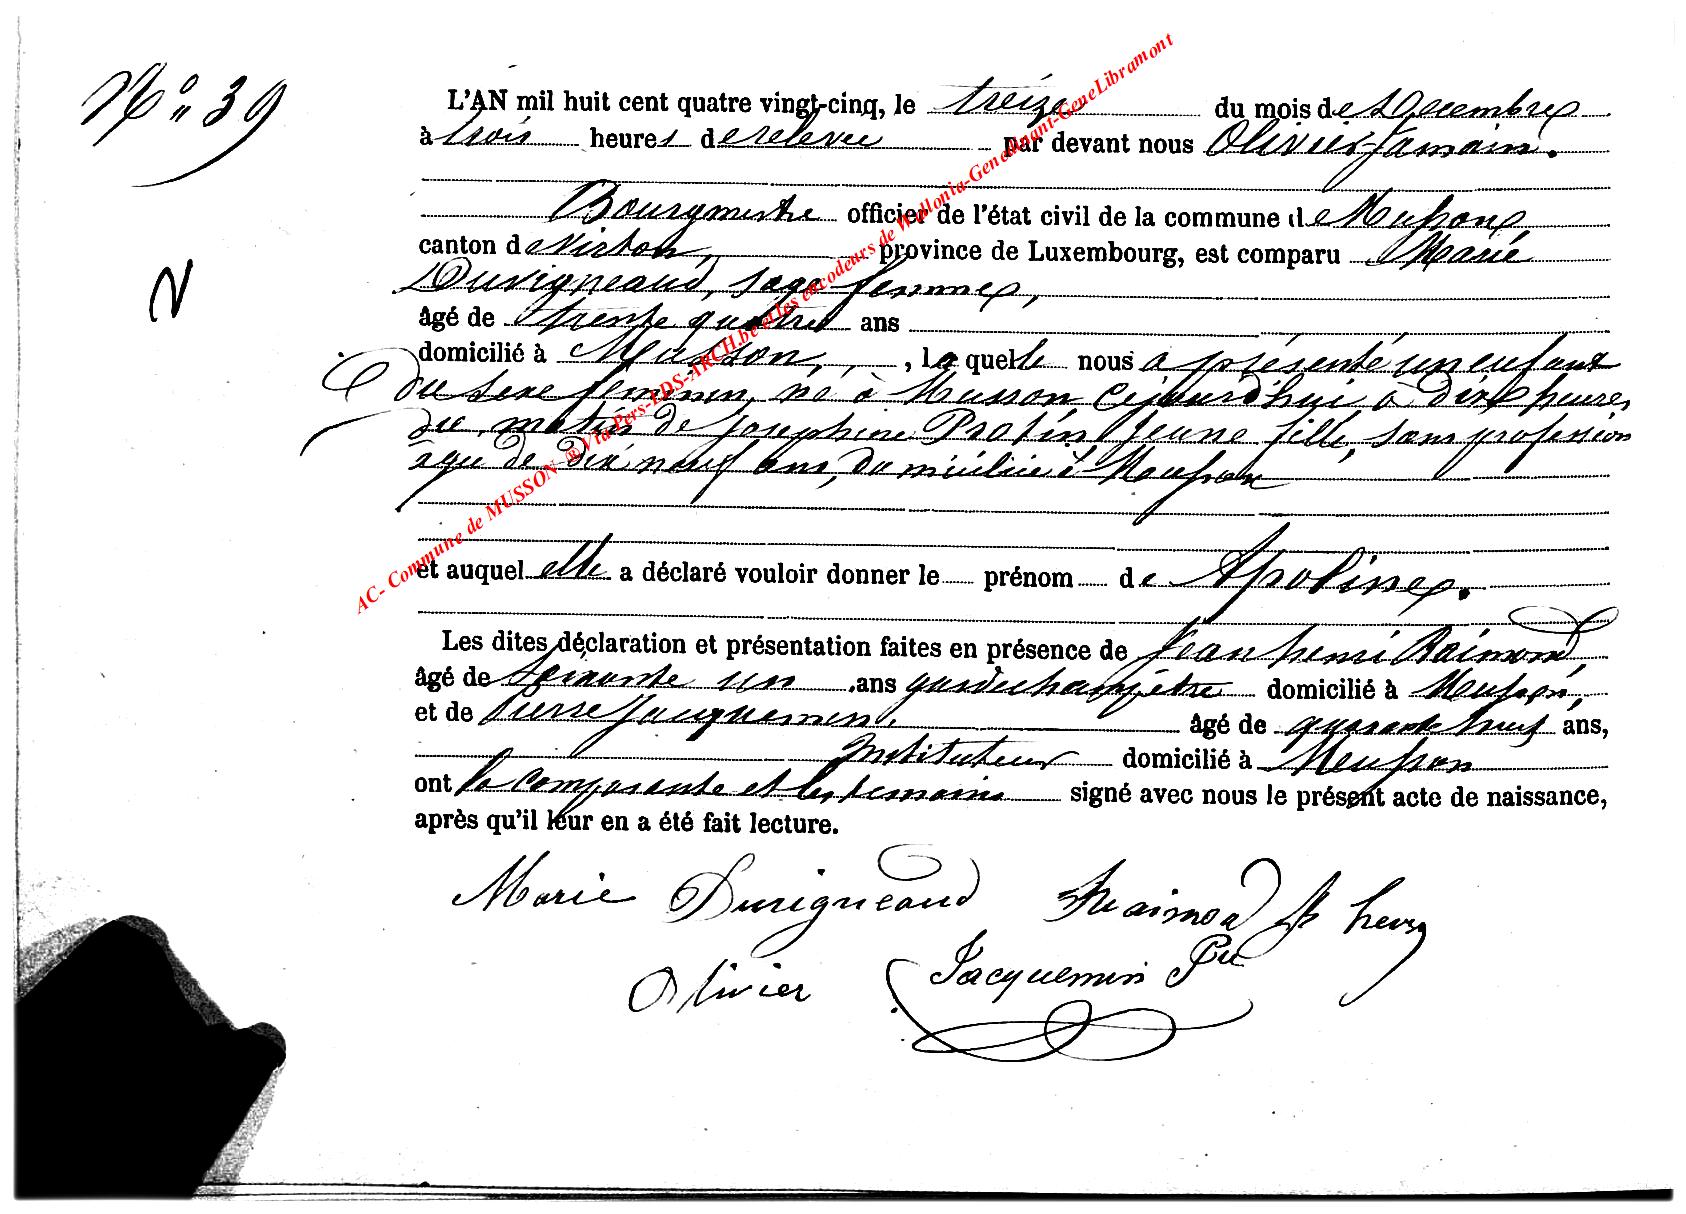 N° 39
L'AN mil huit cent quatre vingt-cinq, le treize du mois de Décembre
à trois heures de relevée par devant nous Olivier Jamain.
Bourgmestre officier de l'état civil de la commune de Musson
canton de Virton, province de Luxembourg, est comparu Marie
Duvigneaud, sage femme,
âgé de trente quatre ans
domicilié à Musson, , laquelle nous a présenté un enfant
du sexe féminin, né à Musson cejourd'hui à dix heures
du matin de Joséphine Protin jeune fille, sans profession
agée de dix neuf ans, domiciliée à Musson
et auquel elle a déclaré vouloir donner le prénom de Apoline.
Les dites déclaration et présentation faites en présence de Jean henri Raimond,
âgé de soixante un ans garde champêtre domicilié à Musson,
et de Pierre Jacquemin, âgé de quarante huit ans,
Instituteur domicilié à Musson
ont la comparante et les temoins signé avec nous le présent acte de naissance,
après qu'il leur en a été fait lecture.
Marie Duvigneaud Raimond J henry
Olivier Jacquemin Pre
AC- Commune de MUSSON ® Via Pers-LDS-ARCH.be et les encodeurs de Wallonia-GeneDinant-GeneLibramont